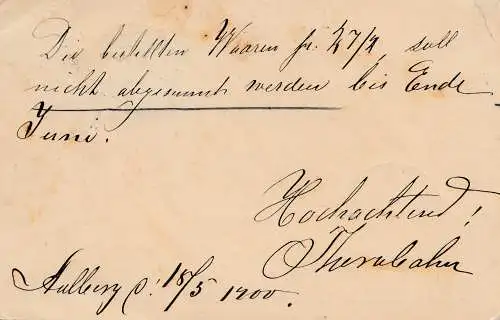 Die bestellten Waaren fr. 27/4 soll
nicht abgesannt werden bis Ende
Juni.
Hochachtend!
Aalborg d: 18/5 1900.